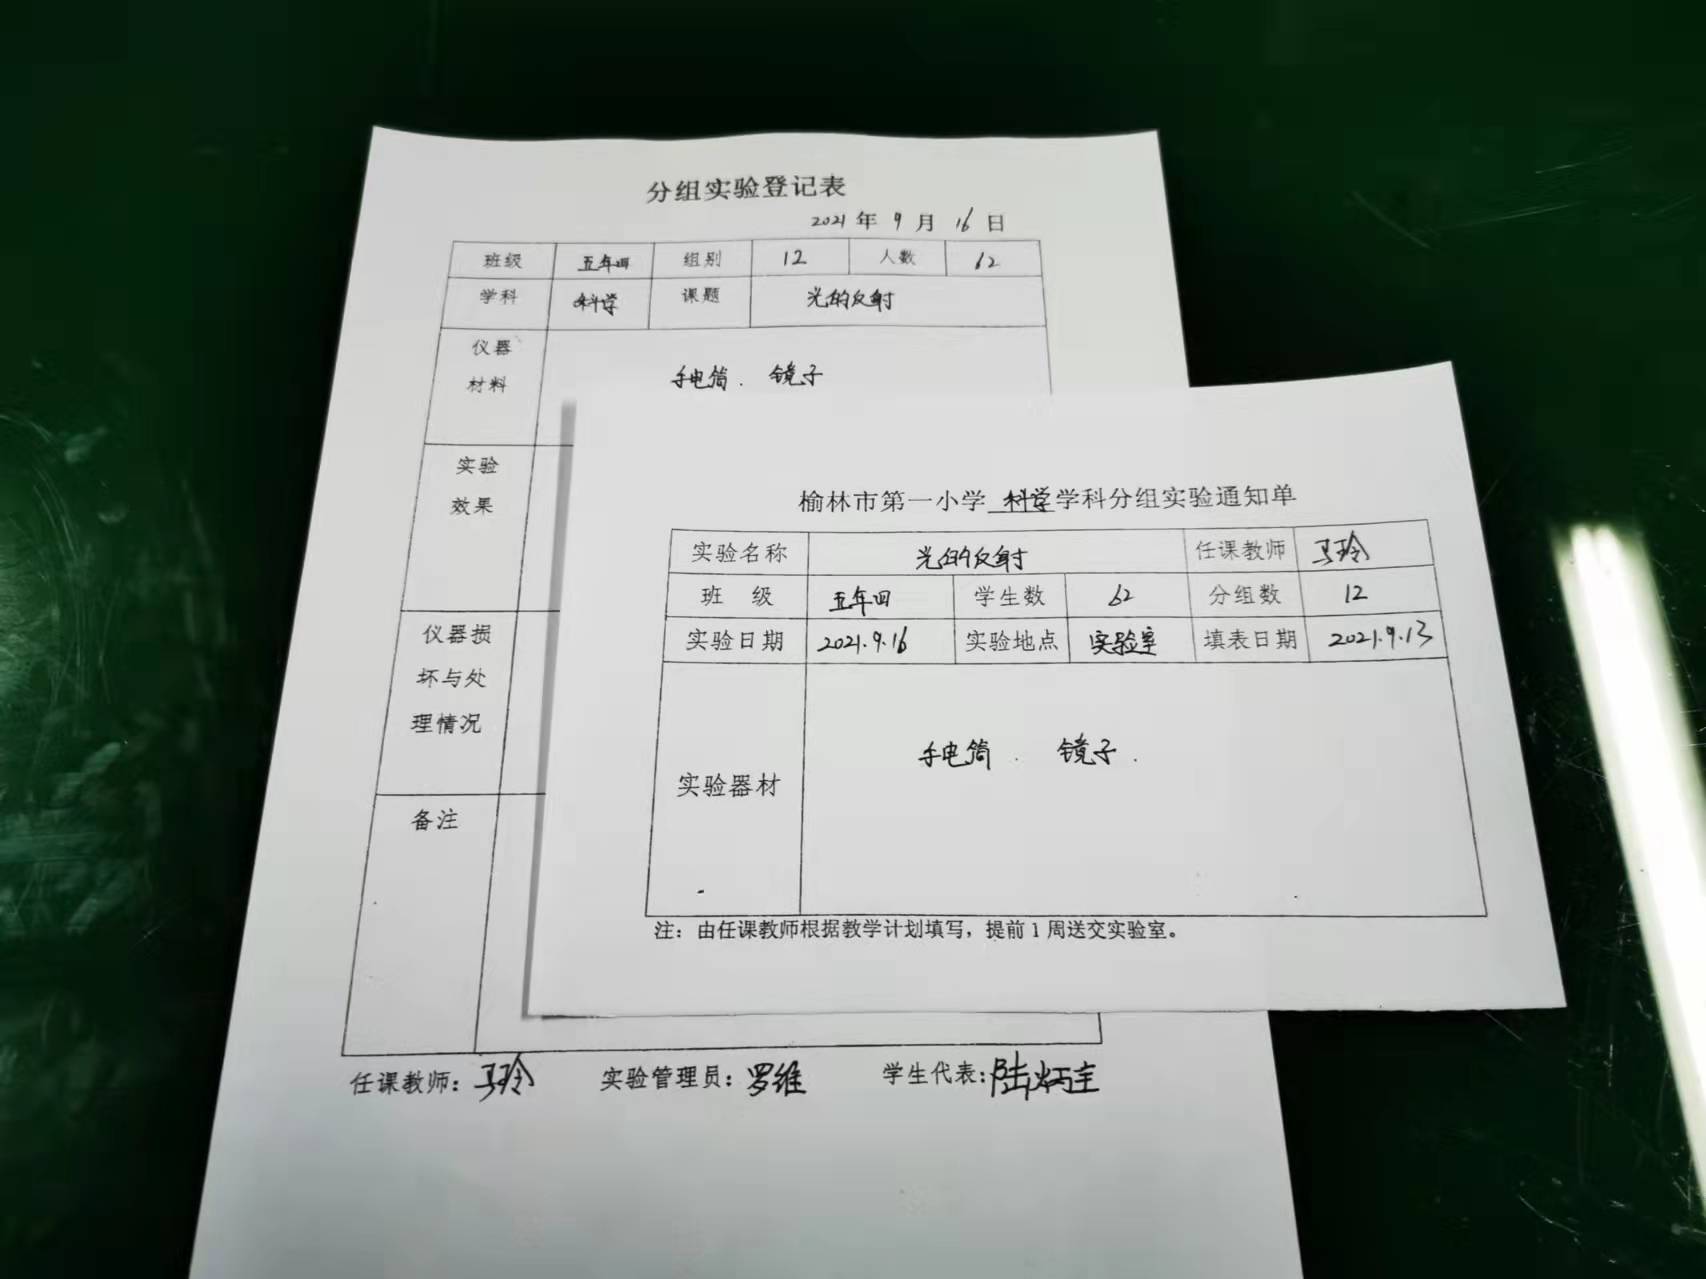 分组实验登记表
2021年9月16日
班级 五年四 组别 12 人数 62
学科 科学 课题 光的反射
仪器
材料
手电筒. 镜子
实验
效果
仪器损
坏与处
理情况
备注
任课教师：马玲 实验管理员：罗维 学生代表：陆炳宇
榆林市第一小学科学学科分组实验通知单
实验名称 光的反射 任课教师 马玲
班 级 五年四 学生数 62 分组数 12
实验日期 2021.9.16 实验地点 实验室 填表日期 2021.9.13
实验器材 手电筒. 镜子.
注：由任课教师根据教学计划填写，提前1周送交实验室。